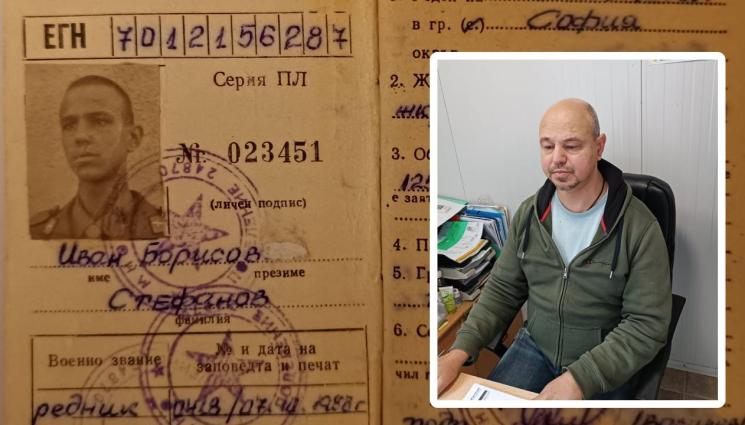 ЕГН 7012156287
Серия ПЛ
№ 023451
(личен подпис)
Иван Борисов
име презиме
Стефанов
фамилия
Военно звание
№ и дата на
заповедта и печат
редник
в гр. (с) София
окръг
2. Ж
жк
3. Об
125
е зая
4. П
5. Гр
6. Се
чил г